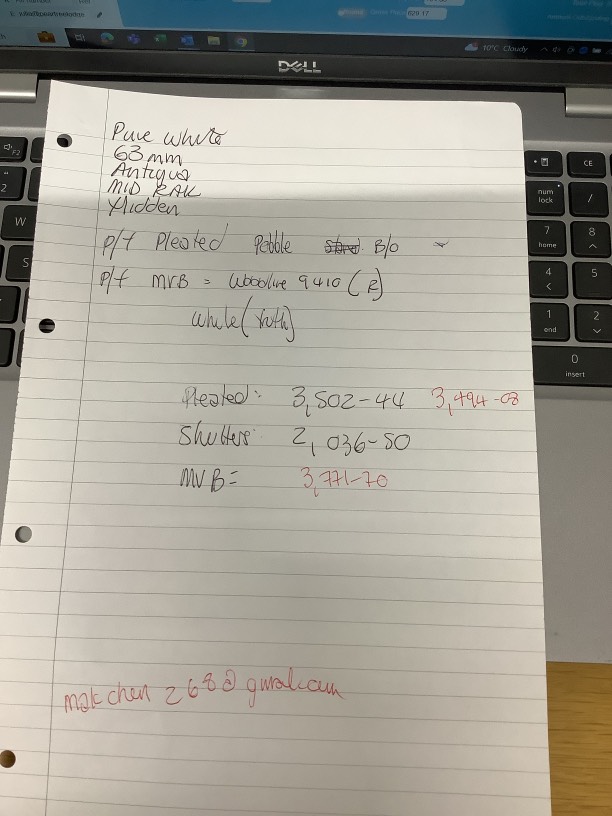 10°C Cloudy
DELL
Pure White
63mm
Antigua
MID RAK
Hidden
P/f Pleated Pebble B/O
P/f MVB = Woodline 9410 (R)
White (Yuth)
Pleated: 3,502-44 3,494-08
Shutters: 2,036-50
MVB = 3,771-70
makchen268@gmail.com
F2
CE
2
num lock
/
W
7 home
8
S
4
5
1 end
2
0 insert